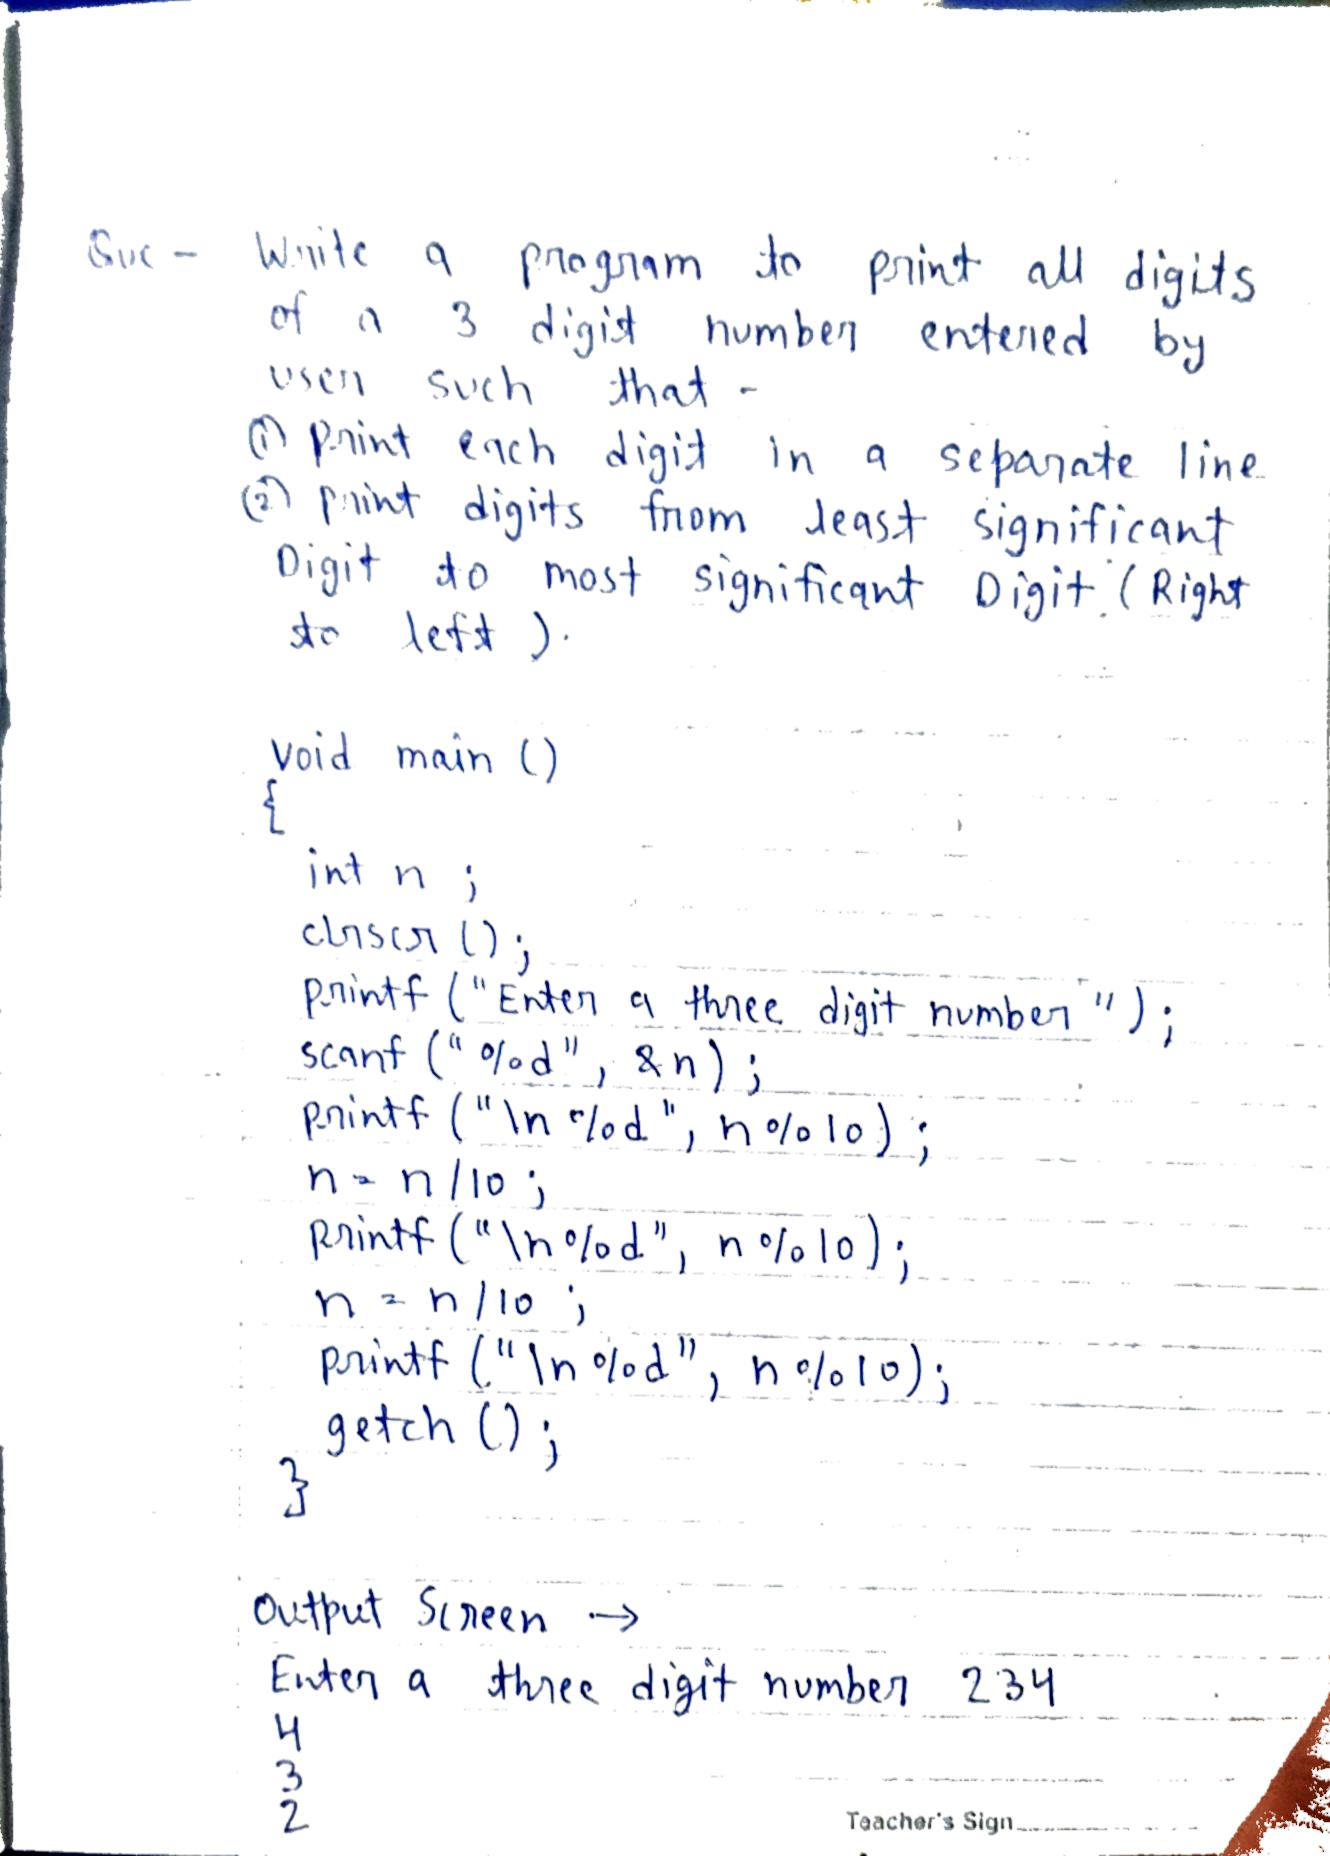 Que - Write a program to print all digits
of a 3 digit number entered by
user such that -
(1) print each digit in a separate line
(2) print digits from least significant
Digit to most significant Digit (Right
to left).
void main ()
{
int n ;
clrscr ();
printf ("Enter a three digit number");
scanf ("%d", &n);
printf ("\n %d", n%10);
n = n/10 ;
printf ("\n%d", n%10);
n = n/10 ;
printf ("\n%d", n%10);
getch ();
}
Output Screen →
Enter a three digit number 234
4
3
2
Teacher's Sign